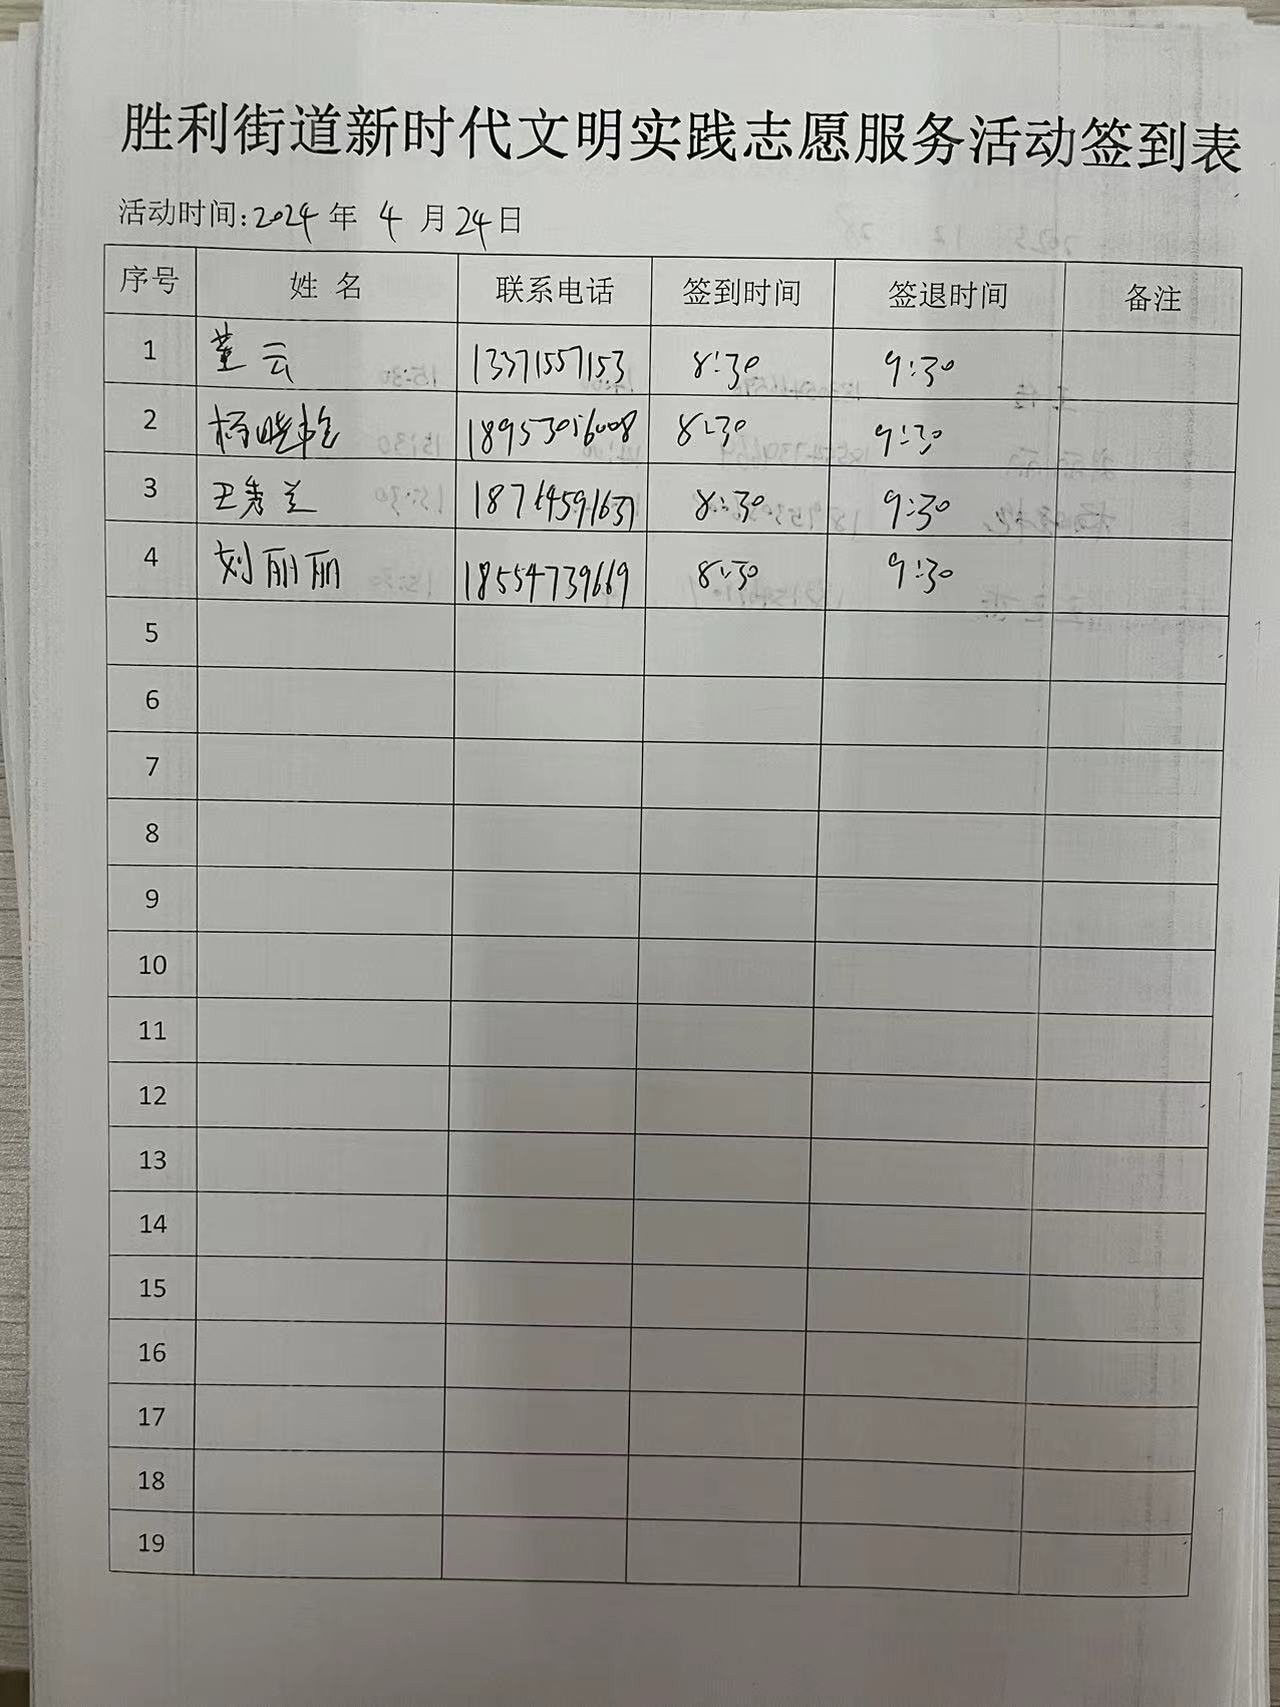 胜利街道新时代文明实践志愿服务活动签到表
活动时间:2024年 4 月 24 日
序号 姓 名 联系电话 签到时间 签退时间 备注
1 董云 13371557153 8:30 9:30
2 杨晓艳 18953056008 8:30 9:30
3 王秀兰 18764591637 8:30 9:30
4 刘丽丽 18554739669 8:30 9:30
5
6
7
8
9
10
11
12
13
14
15
16
17
18
19